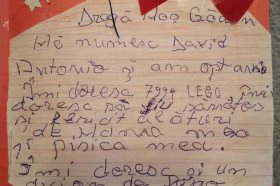 Dragă Moș Crăciun
Mă numesc David
Antonio și am opt ani
Îmi doresc 7994 LEGO, îmi
doresc să fiu sănătos
și fericit alături
de Mama mea
și pisica mea.
Îmi doresc și un
de